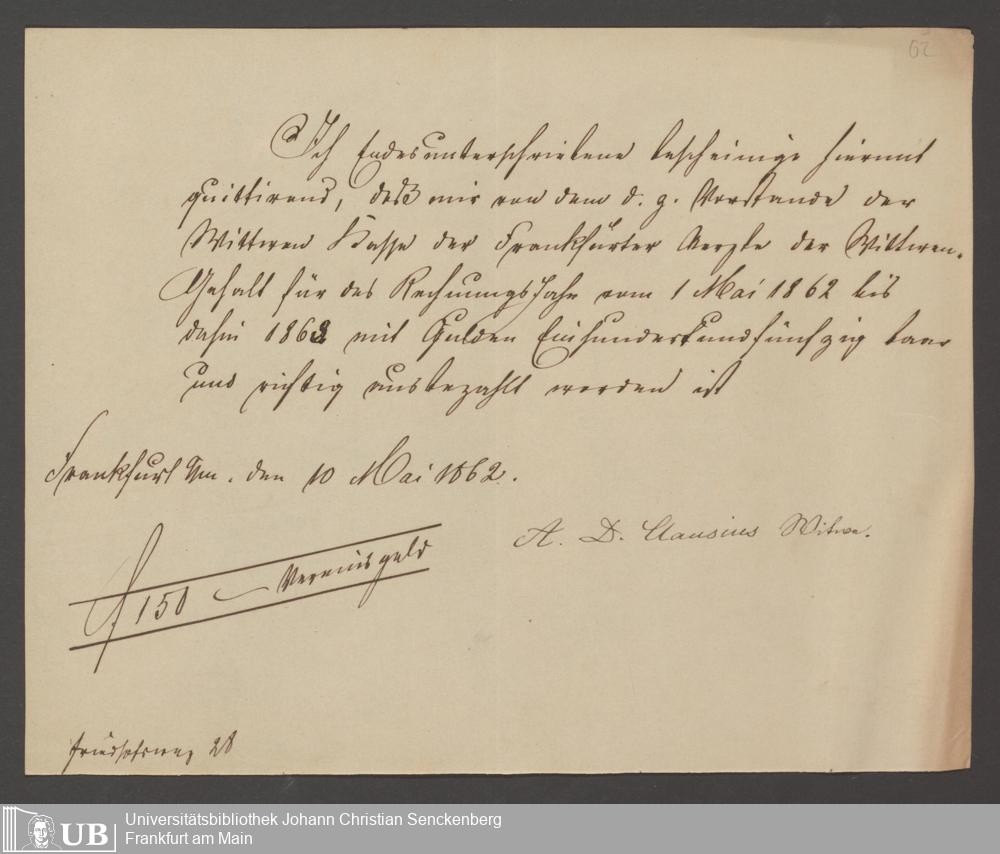 62
Ich Endesunterschriebene bescheinige hiermit
quittirend, daß mir von dem d. g. Vorstande der
Wittwen Kasse der Frankfurter Aerzte der Wittwen-
Gehalt für das Rechnungsjahr vom 1 Mai 1862 bis
dahin 1863 mit Gulden Einhundertundfünfzig baar
und richtig ausbezahlt worden ist
Frankfurt a/m. den 10 Mai 1862.
A. D. Clausius Witwe.
f 150 — Vereinsgeld
Friedhofsweg 28
UB Universitätsbibliothek Johann Christian Senckenberg
Frankfurt am Main